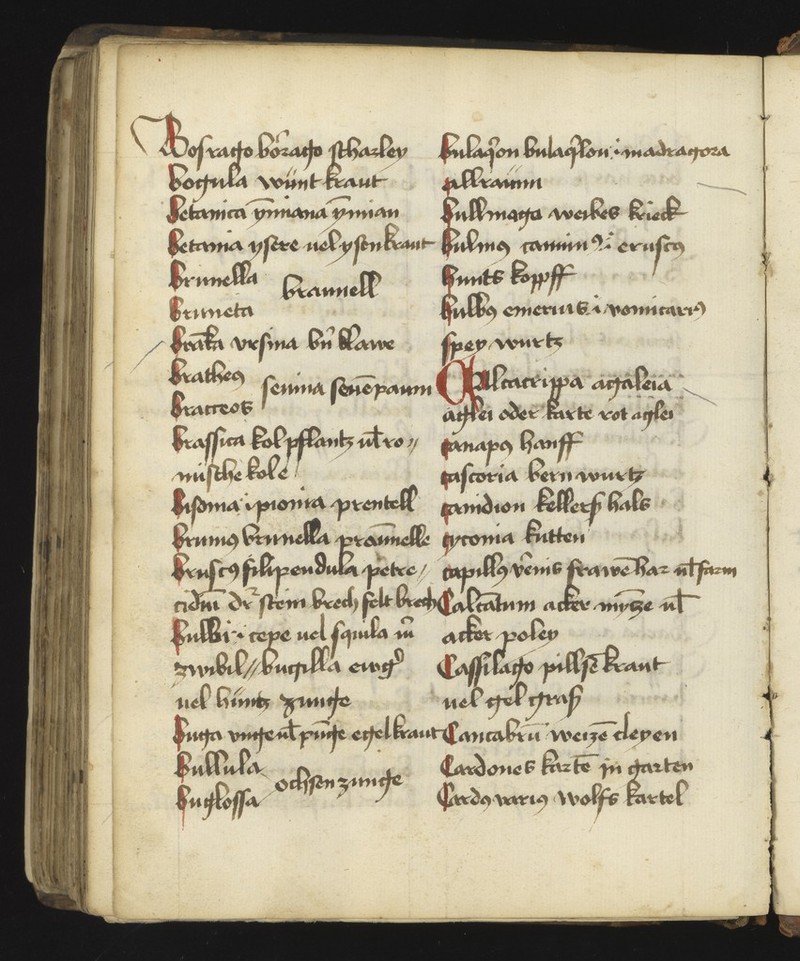 Bosrago borago scharley
bogula wunt kraut
betanica ymiana ymian
betania ysere uel ysenkraut
brunella
braunell
bruneta
branca ursina bern klawe
bratheos
seuina seuenpaum
bracteos
brassica kol pflantz ul ro〃
mische kole
bisoma i pionia prentell
brunus brunella praunnelle
bruscus filipendula petre〃
cidum dr stein brech felt brech
bulbi i cepe uel squila
zwibil〃 bugilla
uel huntz zunge
buga unge egelkraut
bullula
ochsenzunge
buglossa
i madragora
allraum
bullmaga weibes krieck
bulmus
hunts kopff
bulbus emerius i vomicarius
spey wurtz
Calcatrippa agaleia
aglei oder karte rot aglei
canapus hanff
castoria bern wurtz
canidion kellers hals
cyconia kutten
capillus veneris frawen har ul farm
Calcatum acker myntze ul
acker poley
Cassilago pillsen kraut
uel gel gras
Cantabrum weizen cleyen
Cardones karten in garten
Cardus varius wolfs kartel